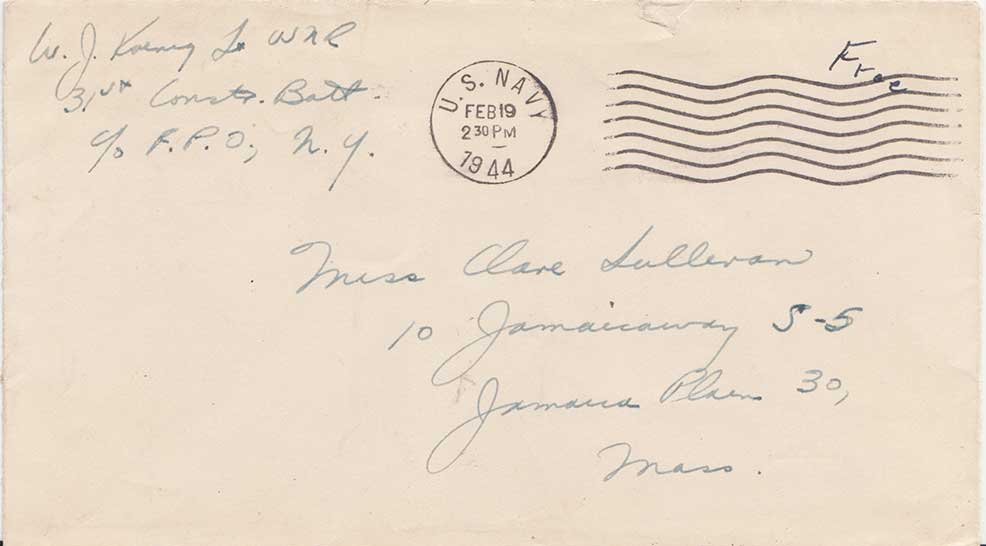 W. J. Koenig Lt USNR
31st Constr. Batt.
c/o F.P.O., N.Y.
U.S. NAVY
FEB 19
2 30 PM
1944
Free
Miss Clare Sullivan
10 Jamaicaway S-5
Jamaica Plain 30,
Mass.